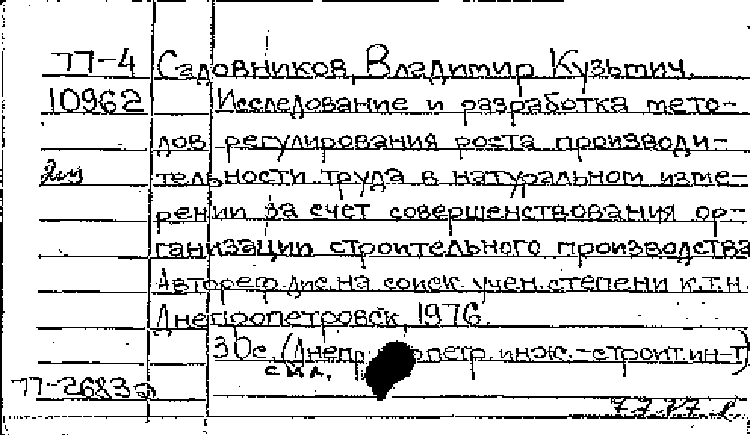 77-4 Садовников, Владимир Кузьмич.
10962 Исследование и разработка мето-
дов регулирования роста производи-
2 тельности труда в натуральном изме-
рении за счет совершенствования ор-
ганизации строительного производства
Автореф. дис. на соиск. учен. степени к.т.н.
Днепропетровск, 1976.
30с. (Днепр петр. инж.-строит. ин-т)
с ил.
77-2683а